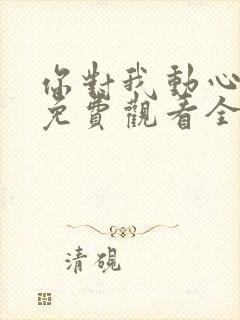 你對我動心
免費觀看全
清硯